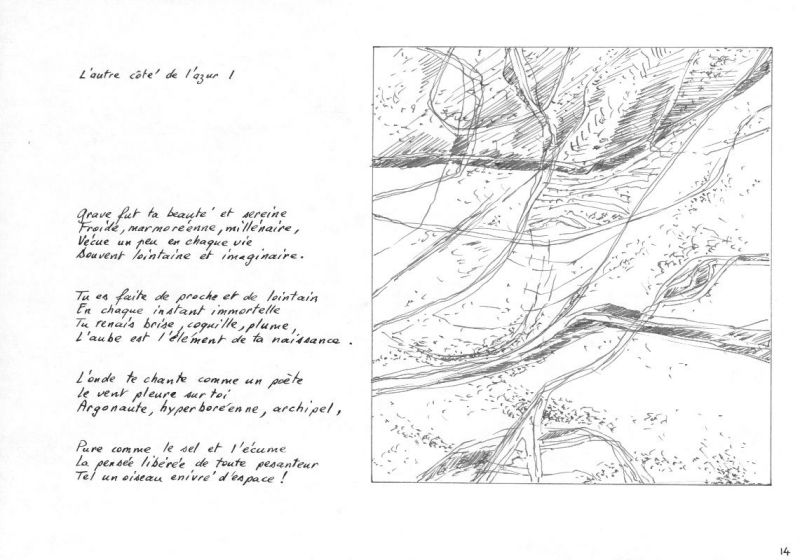 L'autre côté de l'azur !
Grave fut ta beauté et sereine
Froide, marmoréenne, millénaire,
Vécue un peu en chaque vie
Souvent lointaine et imaginaire.
Tu es faite de proche et de lointain
En chaque instant immortelle
Tu renais brise, coquille, plume,
L'aube est l'élément de ta naissance.
L'onde te chante comme un poète
Le vent pleure sur toi
Argonaute, hyperboréenne, archipel,
Pure comme le sel et l'écume
La pensée libérée de toute pesanteur
Tel un oiseau enivré d'espace !
14